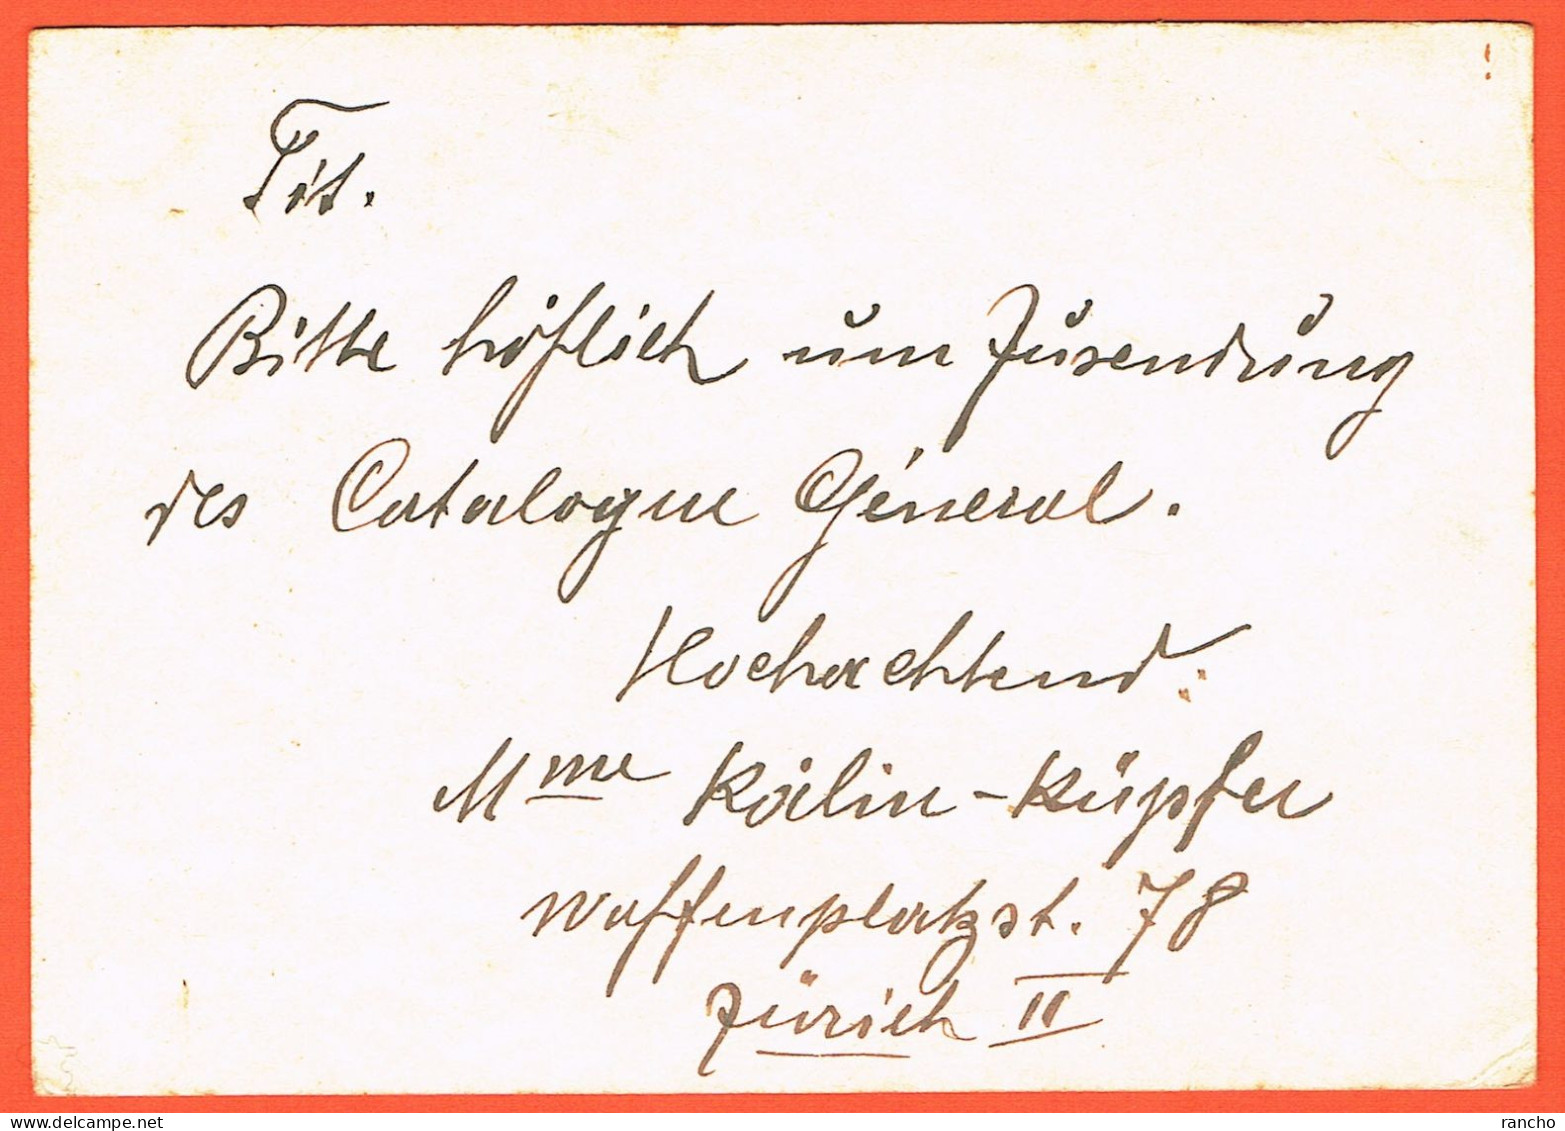 Tit.
Bitte höflich um Zusendung
des Catalogue Général.
Hochachtend:
Mme Kälin-Küpfer
Waffenplatzst. 78
Zürich II
delcampe.net
rancho